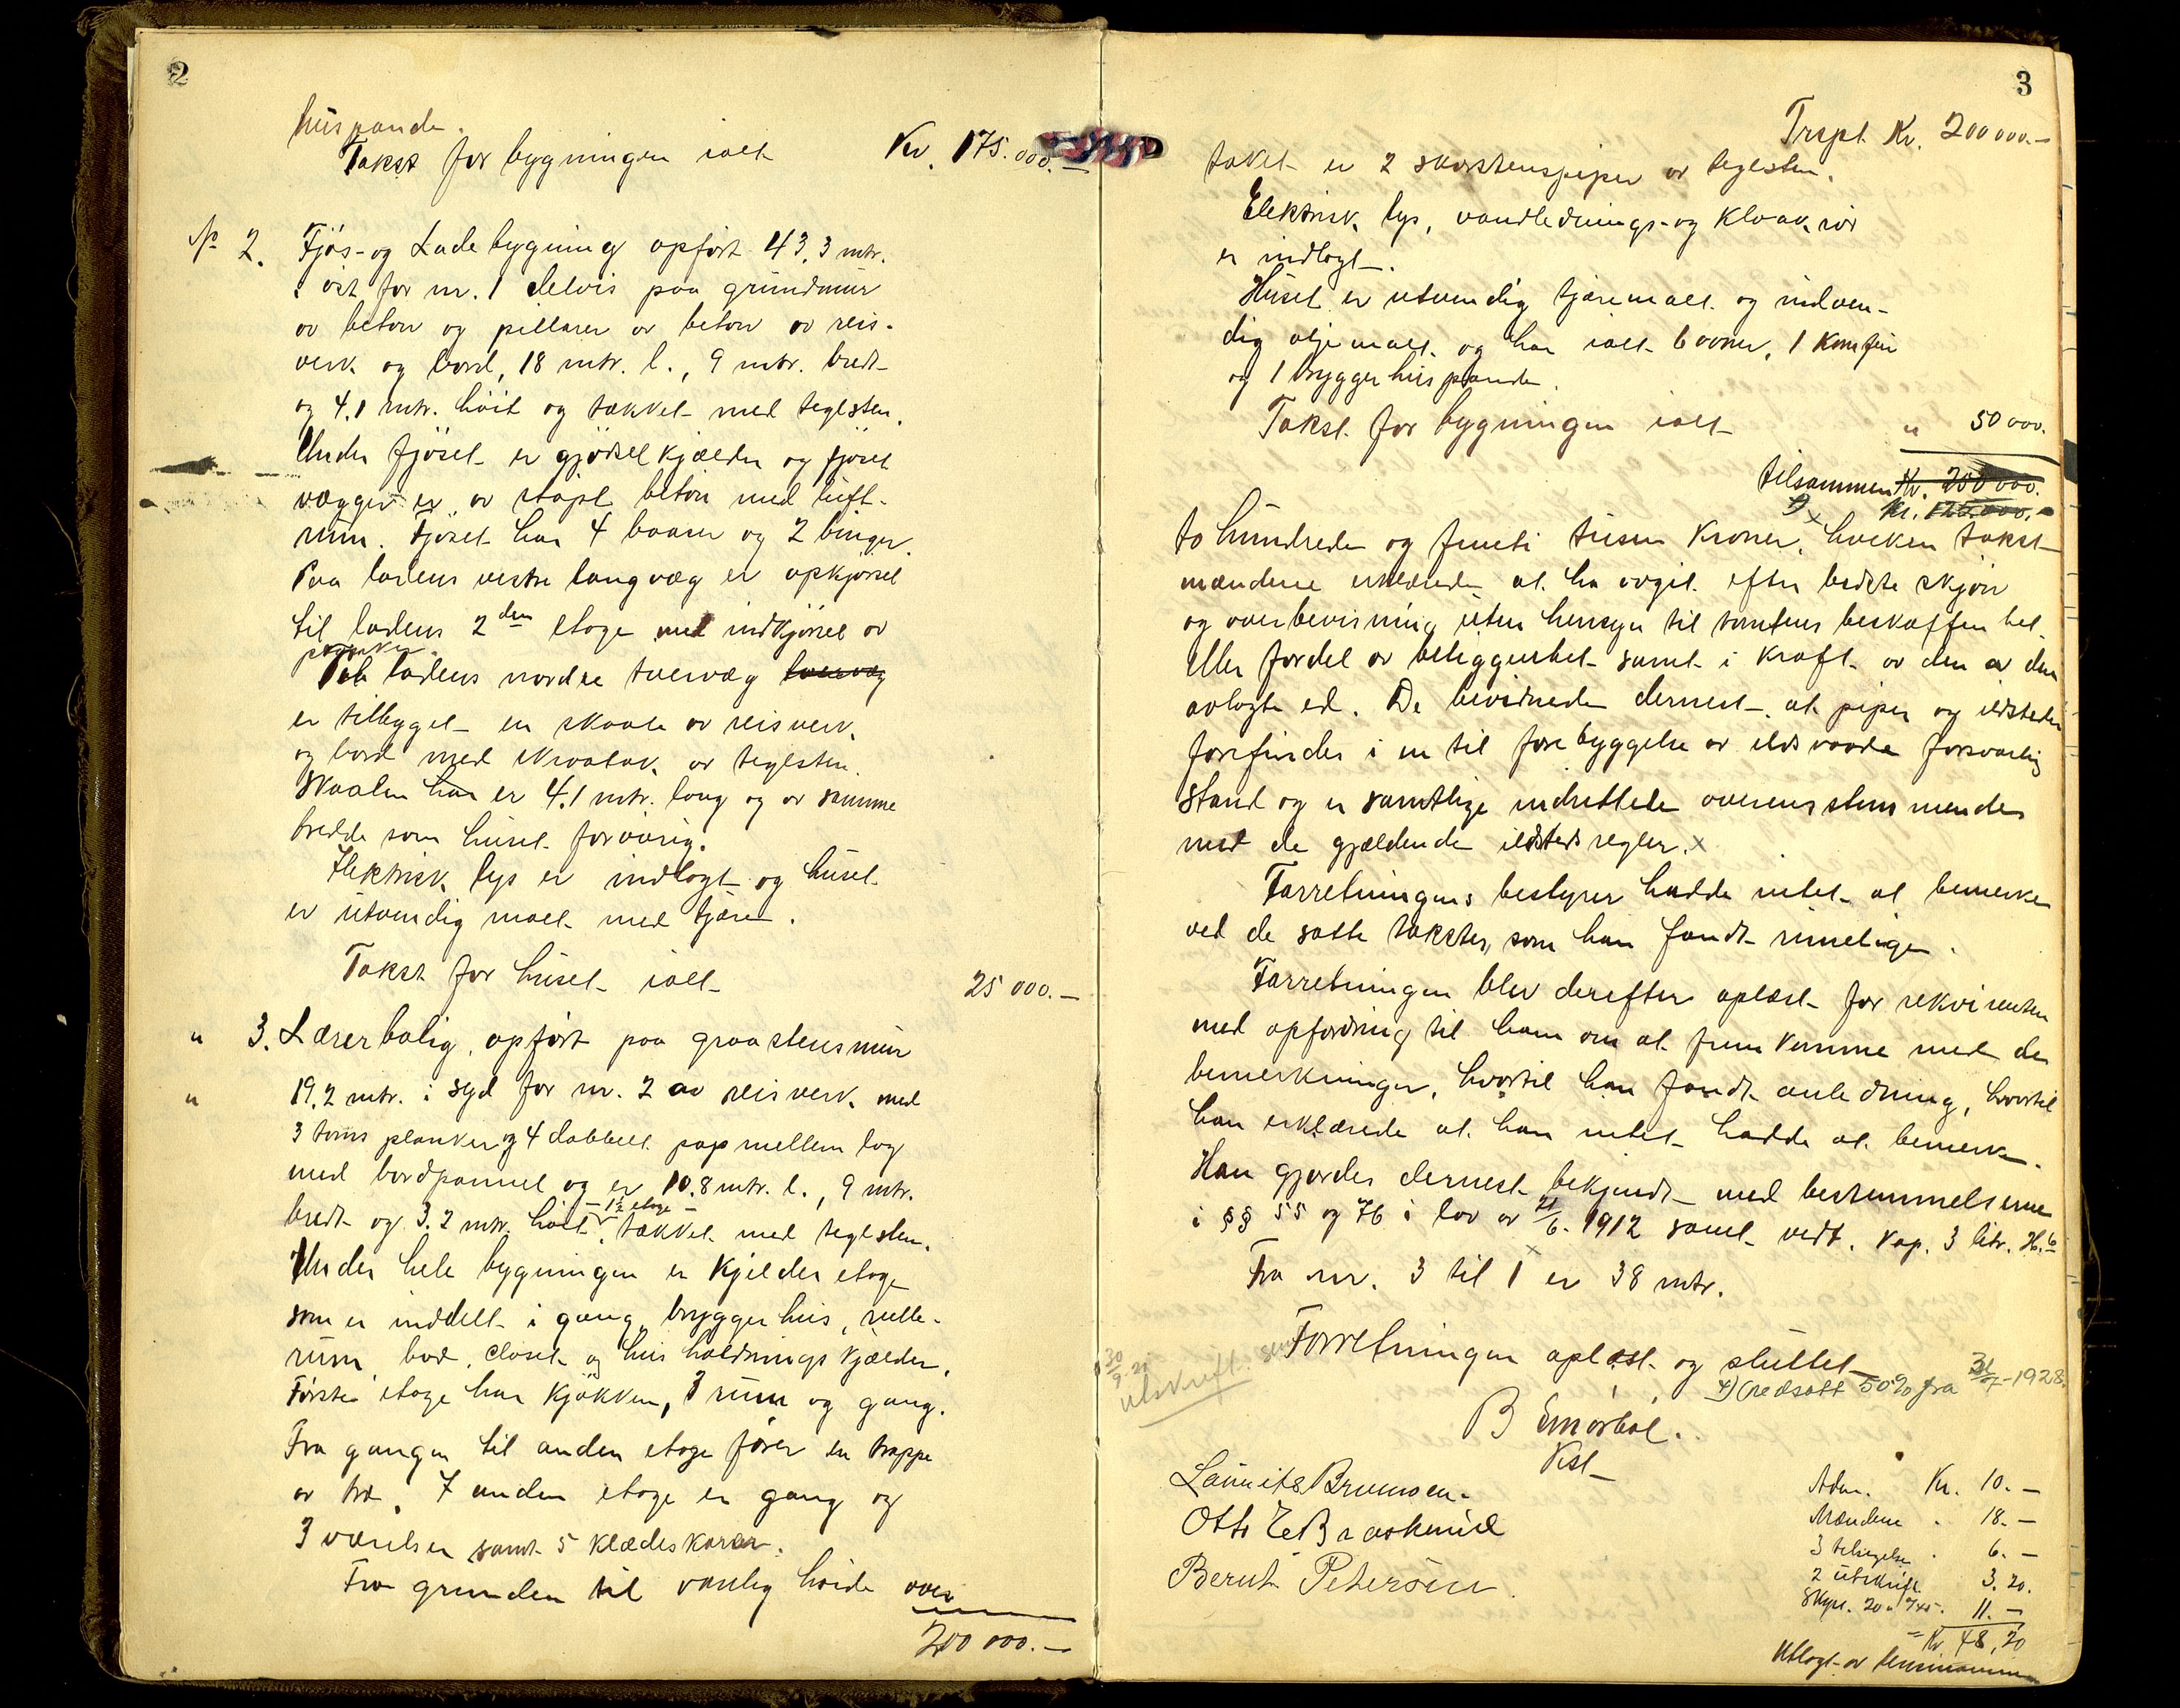 2
huspande.
Takst for bygningen ialt Kr. 175.000.—
№ 2. Fjøs- og Ladebygning opført 43,3 mtr.
i øst for nr. 1 delvis paa grundmur
av beton og pillarer av beton av reis-
verk og bord, 18 mtr. l., 9 mtr. bredt
og 4,1 mtr. høit og tækket med teglsten.
Under fjøset er gjødselkjælder og fjøset
vægger er av støpt beton med luft-
rum. Fjøset har 4 baaser og 2 binger.
Paa ladens vestre langvæg er opkjørsel
til ladens 2den etage med indkjørsel av
planker.
Ved ladens nordre tvervæg tvervæg
er tilbygget en skaale av reisverk
og bord med skraatak av teglsten.
Skaalen har er 4,1 mtr. lang og av samme
bredde som huset forøvrig.
Elektrisk lys er indlagt og huset
er utvendig malt med tjære.
Takst for huset ialt 25 000.—
" 3. Lærerbolig, opført paa graastensmur
" 19,2 mtr. i syd for nr. 2 av reisverk med
3 toms planker og 4 dobbelt pap mellemlag
med bordpannel og er 10,8 mtr. l., 9 mtr.
— 1½ etage —
bredt og 3,2 mtr. høit, tækket med teglsten.
Under hele bygningen er kjelder etage
som er inddelt i gang, bryggerhus, rulle-
rum, bod, closet og husholdningskjælder.
Første etage har kjøkken, 3 rum og gang.
Fra gangen til anden etage fører en trappe
av træ. I anden etage er gang og
3 værelser samt 5 klædeskaper.
Fra grunden til vanlig høide over
200 000.—
3
Trspt. Kr. 200 000.—
taket er 2 skorstenspiper av teglsten.
Elektrisk lys, vandlednings- og kloakrør
er indlagt.
Huset er utvendig tjæremalt og indven-
dig oljemalt og har ialt 6 ovner, 1 komfur
og 1 bryggerhuspande.
Takst for bygningen ialt " 50 000.
tilsammen Kr. 250 000.
Kr. 125.000.—
to hundrede og femti tusen kroner, hvilken takst
mændene erklærede at ha avgit efter bedste skjøn
og overbevisning uten hensyn til tomtens beskaffenhet
eller fordel av beliggenhet samt i kraft av den av dem
avlagte ed. De bevidnede dernest at piper og ildsteder
forefindes i en til forebyggelse av ildsvaade forsvarlig
stand og er samtlige indrettede overensstemmende
med de gjældende ildstedsregler. x
Forretningens bestyrer hadde intet at bemerke
ved de satte takster, som han fandt rimelige.
Forretningen blev derefter oplæst for rekvirenten
med opfordring til ham om at fremkomme med de
bemerkninger, hvortil han fandt anledning, hvortil
han erklærede at han intet hadde at bemerke.
Han gjordes dernest bekjendt med bestemmelserne
i §§ 55 og 76 i lov av 21/6. 1912 samt vedt. kap. 3 litr. H. 6
Fra nr. 3 til 1 er 38 mtr.
Forretningen oplæst og sluttet
30/9-21
utskrift
x) (nedsatt 50% fra 31/7-1928.
B Smørbøl.
Kst
Laurits Brunsen.
Otto E. Braskerud
Bernt Petersen.
Adm. Kr. 10.—
Mændene " 18.—
3 tilsigelse " 6.—
2 utskrift 3.20.
Skyss. 11.—
= Kr. 48,20
Utlagt av lensmannen